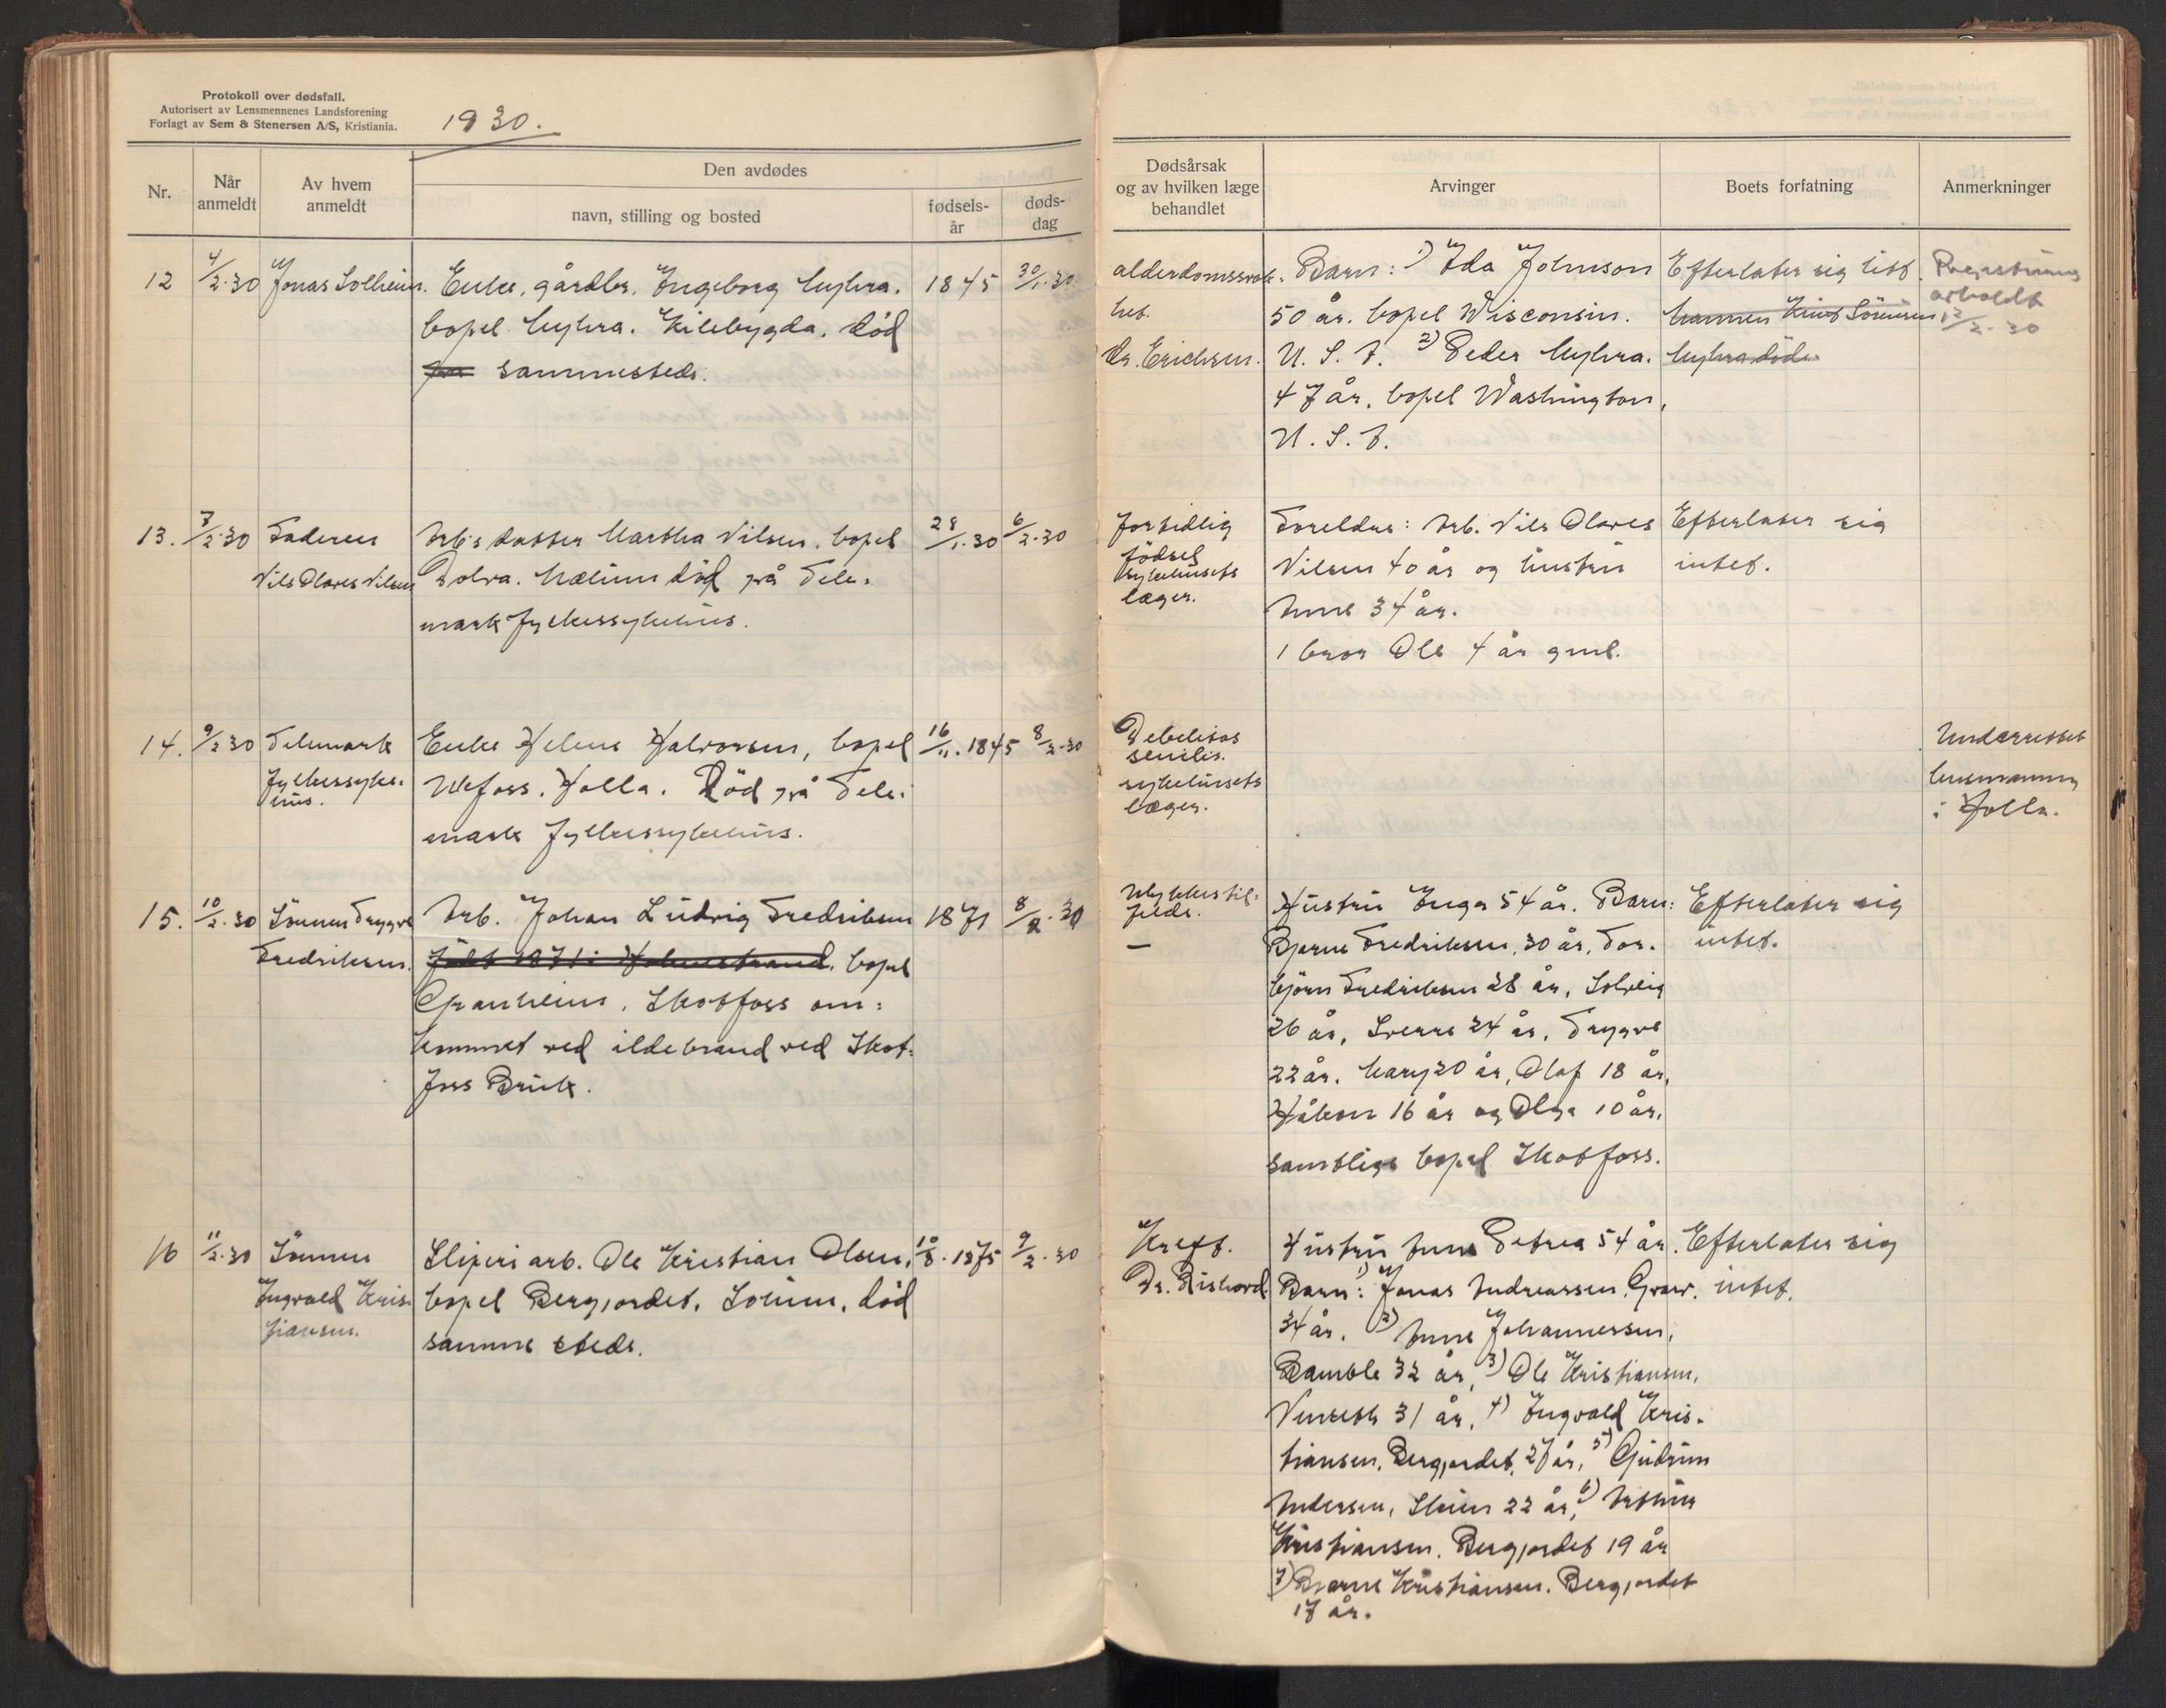 Protokoll over dødsfall.
Autorisert av Lensmennenes Landsforening
Forlagt av Sem & Stenersen A/S, Kristiania.
1930.
Nr.
Når anmeldt
Av hvem anmeldt
Den avdødes
navn, stilling og bosted
fødsels-år
døds-dag
Dødsårsak og av hvilken læge behandlet
Arvinger
Boets forfatning
Anmerkninger
12
4/2-30
Jonas Solheim.
Enke, gårdbr. Ingeborg Myhra.
bopel Myhra. Kilebygda. Død
sammesteds.
1845
30/1-30
alderdomssvak-
het.
Dr. Erichsen.
Barn: 1) Ida Johnson
50 år. bopel Wisconsin.
U. S. A. 2) Peder Myhra.
47 år. bopel Washington,
U. S. A.
Efterlater sig litt.
mannen Knut Sörensen
Myhra döde
Registrering
avholdt
12/2-30
13.
7/2-30
Faderen
Nils Olares Nilsen
Arb.s datter Martha Nilsen. bopel
Dolva. Mælum död på Tele-
mark fylkessykehus.
28/1-30
6/2-30
for tidlig
födsel
sykehusets
læger.
Foreldre: Arb. Nils Olares
Nilsen 40 år og hustru
Anne 34 år.
1 bror Ole 4 år gml.
Efterlater sig
intet.
14.
9/2 30
Telemark
fylkessyke-
hus.
Enke Helene Halvorsen, bopel
Ulefoss. Holla. Död på Tele-
mark fylkessykehus.
16/11-1845
8/2-30
Debelitas
senilis.
sykehusets
læger.
Underrettet
lensmannen
i Holla.
15.
10/2-30
Sönnen Trygve
Fredriksen.
Arb. Johan Ludvig Fredriksen
födt 1871 i Holmestrand. bopel
Granheim. Skotfoss om-
kommet ved ildebrand ved Skot-
foss Bruk.
1871
8/2-30
Ulykkestil-
felde.
—
Hustru Inga 54 år. Barn:
Bjarne Fredriksen, 30 år, Tor-
björn Fredriksen 28 år, Solveig
26 år, Sverre 24 år, Trygve
22 år. Mary 20 år, Olaf 18 år,
Håkon 16 år og Olga 10 år.
samtlige bopel Skotfoss.
Efterlater sig
intet.
16
11/2-30
Sönnen
Ingvald Kris-
tiansen.
Sliperiarb. Ole Kristian Olsen,
bopel Bergjordet. Solum. död
samme steds.
10/8-1875
9/2-30
Kreft.
Dr. Risvord
Hustru Anne Petrea 54 år.
Barn: 1) Jonas Andreassen.
34 år. 2) Anne Johannessen,
Bamble 32 år, 3) Ole Kristiansen,
31 år. 4) Ingvald Kris-
tiansen. Bergjordet, 27 år, 5) Gudrun
Andersen, Skien 22 år, 6)
Kristiansen. Bergjordet 19 år
7) Bjarne Kristiansen. Bergjordet
17 år.
Efterlater sig
intet.